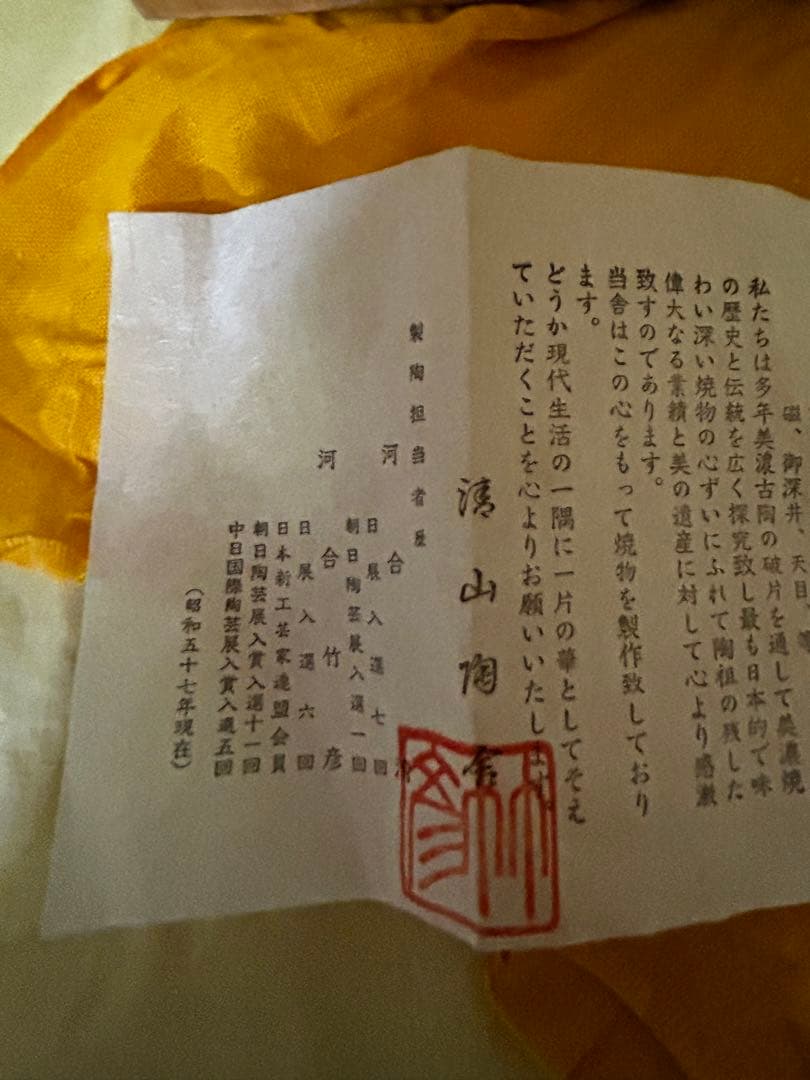 磁、御深井、天目、等
私たちは多年美濃古陶の破片を通して美濃焼
の歴史と伝統を広く探究致し最も日本的で味
わい深い焼物の心ずいにふれて陶祖の残した
偉大なる業績と美の遺産に対して心より感激
致すのであります。
当舎はこの心をもって焼物を製作致しており
ます。
どうか現代生活の一隅に一片の華としてそえ
ていただくことを心よりお願いいたします。
清山陶舎
製陶担当者
河合
日展入選七回
朝日陶芸展入選一回
河合竹彦
日展入選六回
日本新工芸家連盟会員
朝日陶芸展入賞入選十一回
中日国際陶芸展入賞入選五回
(昭和五十七年現在)
竹彦